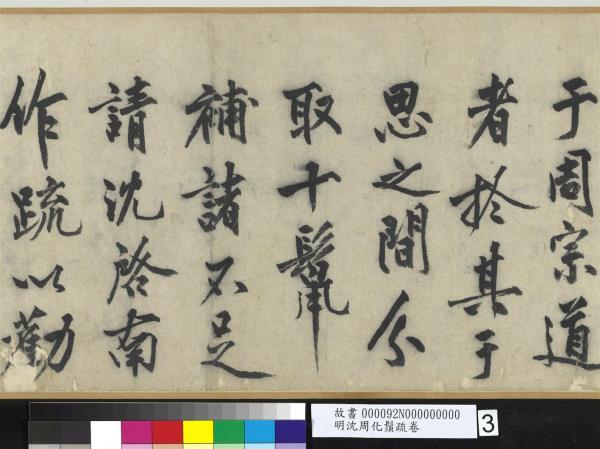 于周宗道
者於其于
思之間分
取十鬣
補諸不足
請沈啓南
作疏以勸
故書 000092N000000000
明沈周化鬚疏卷
3